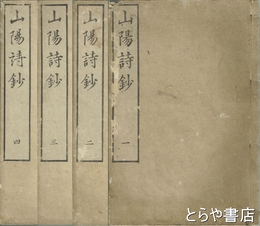 山陽詩鈔 一
山陽詩鈔 二
山陽詩鈔 三
山陽詩鈔 四
とらや書店